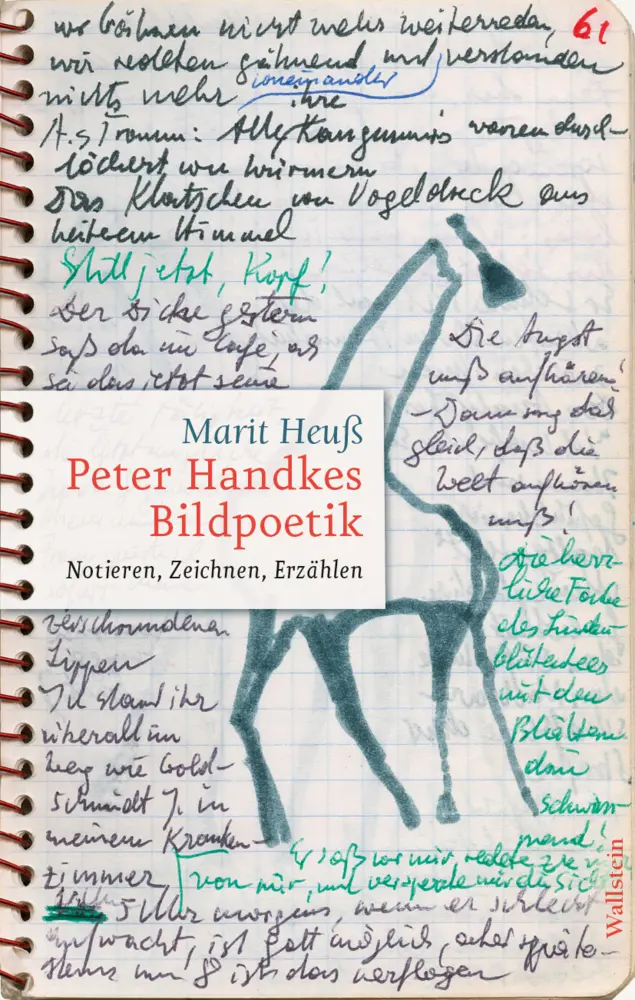 wir redeten gähnend und verstanden
nichts mehr voneinander
61
ihre
A.s Traum: Alle Känguruhs waren durch-
löchert von Würmern
Das Klatschen von Vogeldreck aus
heiterem Himmel
Still jetzt, Kopf!
Der Dicke gestern
saß da im Cafe, als
sei das jetzt seine
Marit Heuß
Peter Handkes
Bildpoetik
Notieren, Zeichnen, Erzählen
verschwundenen
Lippen
Ich stand ihr
überall im
Weg wie Gold-
schmidt J. in
meinem Kranken-
zimmer
Die Angst
muß aufhören!
– Dann sag doch
gleich, daß die
Welt aufhören
muß!
Die herr-
liche Farbe
des Linden-
blütentees
mit den
Blättern
drin
schwim-
mend!
Er saß vor mir, redete
von mir, und versperrte mir die Sicht
5 Uhr morgens, wenn er schlecht
aufwacht, ist Gott möglich, aber späte-
stens um 8 ist das verflogen
Wallstein